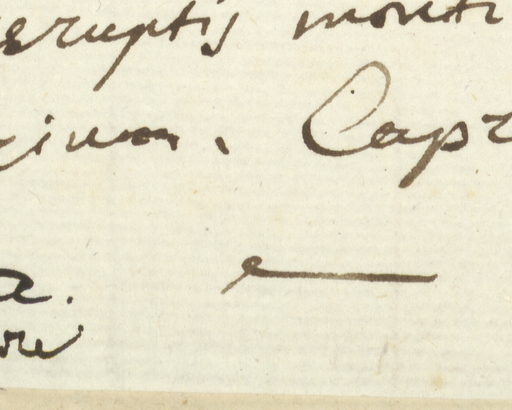 eruptis monti
gium. Capr
a.
ore